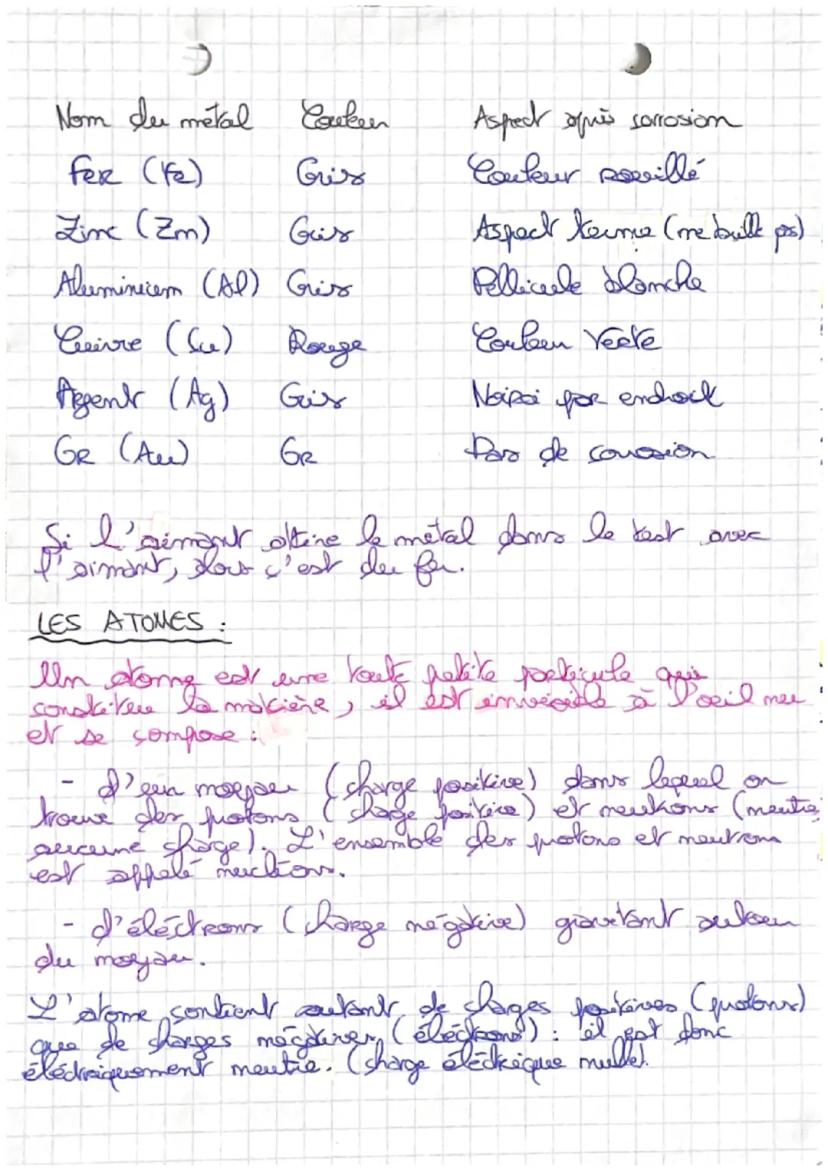 Nom du métal Couleur Aspect après corrosion
Fer (Fe) Gris Couleur rouillé
Zinc (Zn) Gris Aspect terne (ne brille pas)
Aluminium (Al) Gris Pellicule blanche
Cuivre (Cu) Rouge Couleur verte
Argent (Ag) Gris Noirci par endroit
Or (Au) Or Pas de corrosion
Si l'aimant attire le métal dans le test avec
l'aimant, alors c'est du fer.
LES ATOMES :
Un atome est une toute petite particule qui
constitue la matière, il est invisible à l'oeil nu
et se compose :
- d'un noyau (charge positive) dans lequel on
trouve des protons (charge positive) et neutrons (neutre,
aucune charge). L'ensemble des protons et neutrons
est appelé nucléons.
- d'éléctrons (charge négative) gravitant autour
du noyau.
L'atome contient autant de charges positives (protons)
que de charges négatives (éléctrons) : il est donc
éléctriquement neutre. (charge éléctrique nulle).